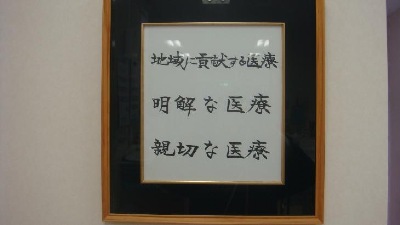 地域に貢献する医療
明解な医療
親切な医療